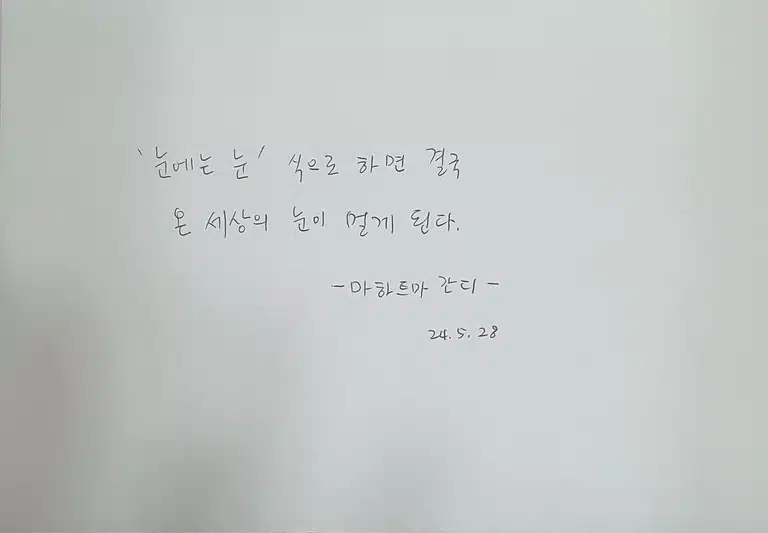 '눈에는 눈' 식으로 하면 결국
온 세상의 눈이 멀게 된다.
-마하트마 간디-
24.5.28